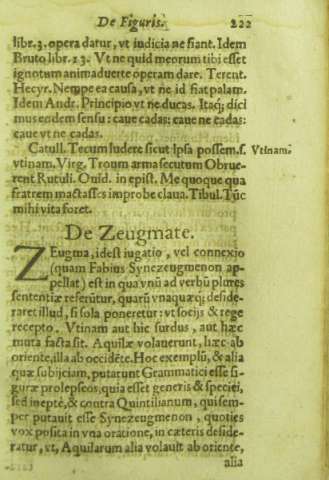 De Figuris. 222
libr. 3. opera datur, vt iudicia ne fiant. Idem
Bruto libr. 13. Vt ne quid meorum tibi esset
ignotum animaduerte operam dare. Terent.
Hecyr. Nempe ea causa, vt ne id fiat palam.
Idem Andr. Principio vt ne ducas. Itaq; dici
mus eodem sensu: caue cadas: caue ne cadas:
caue vt ne cadas.
Catull. Tecum ludere sicut Ipsa possem. s. Vtinam
vtinam. Virg. Troum arma secutum Obrue-
rent Rutuli. Ouid. in epist. Me quoque qua
fratrem mactasses improbe claua. Tibul. Tūc
mihi vita foret.
De Zeugmate.
ZEugma, id est iugatio, vel connexio
(quam Fabius Synezeugmenon ap-
pellat) est in qua vnū ad verbū plures
sententiæ referūtur, quarū vnaquæq; deside-
raret illud, si sola poneretur: vt socijs & rege
recepto. Vtinam aut hic surdus, aut hæc
muta facta sit. Aquilæ volauerunt, hæc ab
oriente, illa ab occidēte. Hoc exemplū, & alia
quæ subijciam, putarunt Grammatici esse fi-
guræ prolepseos, quia esset generis & speciei,
sed ineptè, & contra Quintilianum, qui sem-
per putauit esse Synezeugmenon, quoties
vox posita in vna oratione, in cæteris deside-
ratur, vt, Aquilarum alia volauit ab oriente,
alia